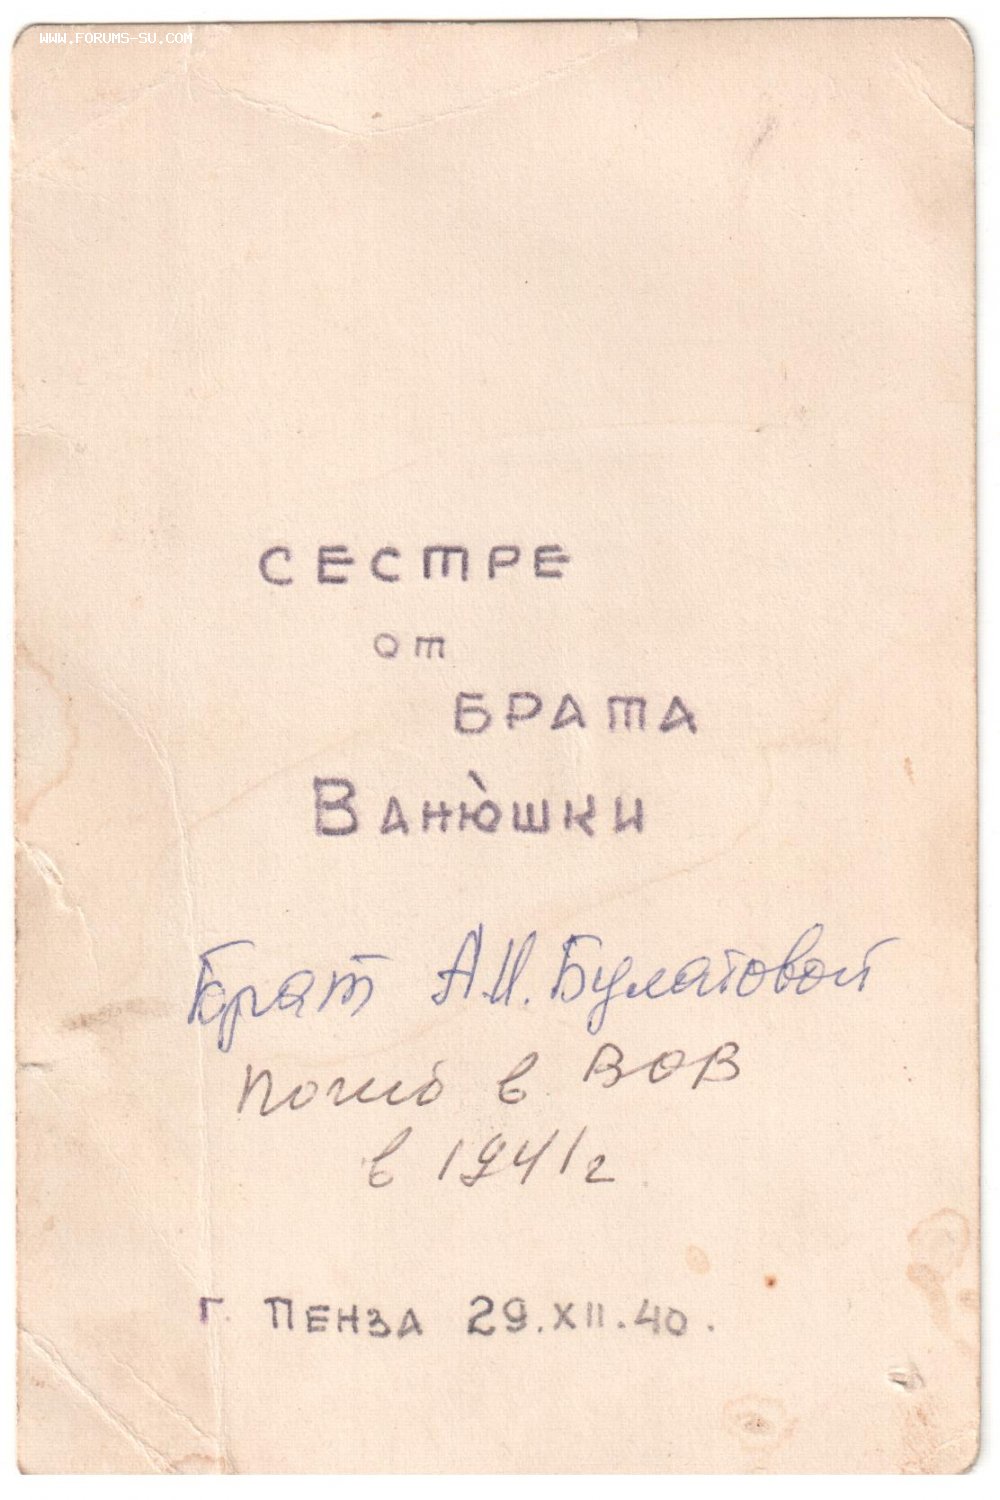 WWW.FORUMS-SU.COM
СЕСТРЕ
от
БРАТА
ВАНЮШКИ
Брат А.И. Булатовой
погиб в ВОВ
в 1941 г
г. ПЕНЗА 29.XII.40.